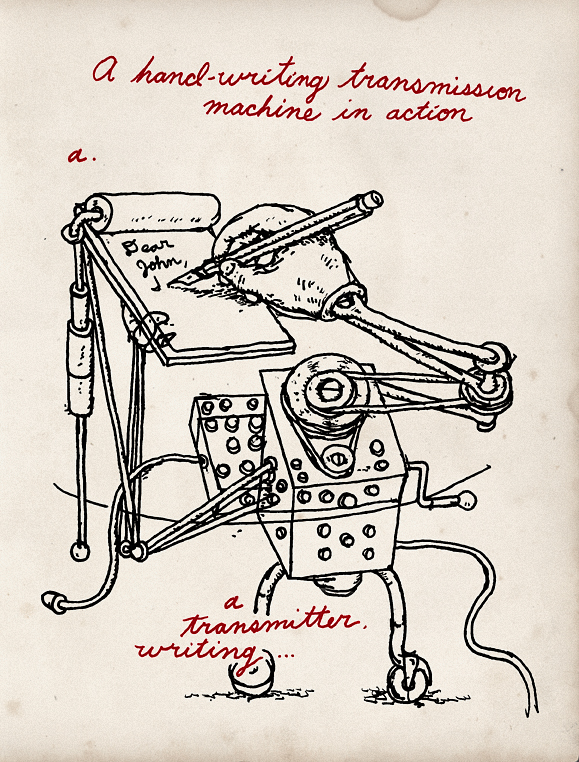 A hand-writing transmission
machine in action
a.
Dear
John,
a
transmitter.
writing...